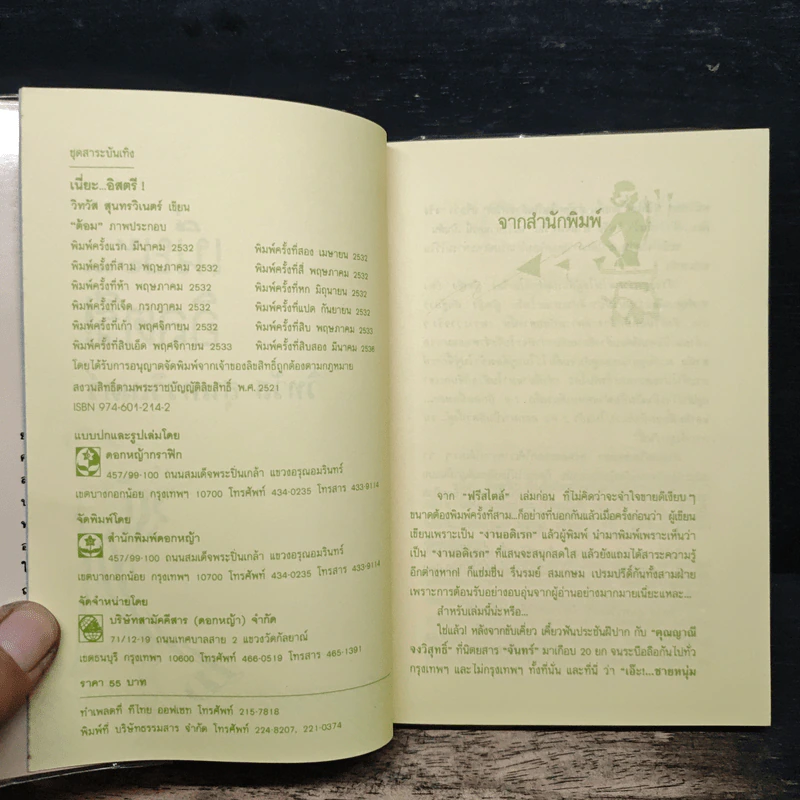 ชุดสาระบันเทิง
เนี่ยะ...อิสตรี !
วิทวัส สุนทรวิเนตร์ เขียน
"ต้อม" ภาพประกอบ
พิมพ์ครั้งแรก มีนาคม 2532
พิมพ์ครั้งที่สอง เมษายน 2532
พิมพ์ครั้งที่สาม พฤษภาคม 2532
พิมพ์ครั้งที่สี่ พฤษภาคม 2532
พิมพ์ครั้งที่ห้า พฤษภาคม 2532
พิมพ์ครั้งที่หก มิถุนายน 2532
พิมพ์ครั้งที่เจ็ด กรกฎาคม 2532
พิมพ์ครั้งที่แปด กันยายน 2532
พิมพ์ครั้งที่เก้า พฤศจิกายน 2532
พิมพ์ครั้งที่สิบ พฤษภาคม 2533
พิมพ์ครั้งที่สิบเอ็ด พฤศจิกายน 2533
พิมพ์ครั้งที่สิบสอง มีนาคม 2536
โดยได้รับการอนุญาตจัดพิมพ์จากเจ้าของลิขสิทธิ์ถูกต้องตามกฎหมาย
สงวนสิทธิ์ตามพระราชบัญญัติลิขสิทธิ์ พ.ศ. 2521
ISBN 974-601-214-2
แบบปกและรูปเล่มโดย
ดอกหญ้ากราฟิก
457/99-100 ถนนสมเด็จพระปิ่นเกล้า แขวงอรุณอมรินทร์
เขตบางกอกน้อย กรุงเทพฯ 10700 โทรศัพท์ 434-0235 โทรสาร 433-9114
จัดพิมพ์โดย
สำนักพิมพ์ดอกหญ้า
457/99-100 ถนนสมเด็จพระปิ่นเกล้า แขวงอรุณอมรินทร์
เขตบางกอกน้อย กรุงเทพฯ 10700 โทรศัพท์ 434-0235 โทรสาร 433-9114
จัดจำหน่ายโดย
บริษัทสามัคคีสาร (ดอกหญ้า) จำกัด
71/12-19 ถนนเทศบาลสาย 2 แขวงวัดกัลยาณ์
เขตธนบุรี กรุงเทพฯ 10600 โทรศัพท์ 466-0519 โทรสาร 465-1391
ราคา 55 บาท
ทำเพลตที่ ทีไทย ออฟเซท โทรศัพท์ 215-7818
พิมพ์ที่ บริษัทธรรมสาร จำกัด โทรศัพท์ 224-8207, 221-0374
จากสำนักพิมพ์
จาก "ฟรีสไตล์" เล่มก่อน ที่ไม่คิดว่าจะจ้ำจี้ขายดีเงียบ ๆ
ขนาดต้องพิมพ์ครั้งที่สาม...ก็อย่างที่บอกกันแล้วเมื่อครั้งก่อนว่า ผู้เขียน
เขียนเพราะเป็น "งานอดิเรก" แล้วผู้พิมพ์ นำมาพิมพ์เพราะเห็นว่า
เป็น "งานอดิเรก" ที่แสนจะสนุกสดใส แล้วยังแถมได้สาระความรู้
อีกต่างหาก! ก็แช่มชื่น รื่นรมย์ สมเกษม เปรมปรีดิ์กันทั้งสามฝ่าย
เพราะการต้อนรับอย่างอบอุ่นจากผู้อ่านอย่างมากมายเนี่ยะแหละ...
สำหรับเล่มนี้น่ะหรือ...
ใช่แล้ว! หลังจากขับเคี่ยว เคี้ยวฟันประชันฝีปาก กับ "คุณญาณี
จงวิสุทธิ์" ที่นิตยสาร "จันทร์" มาเกือบ 20 ยก จนระบือลือกันไปทั่ว
กรุงเทพฯ และไม่กรุงเทพฯ ทั้งที่นั่น และที่นี่ ว่า "เอ๊ะ!...ชายหนุ่ม